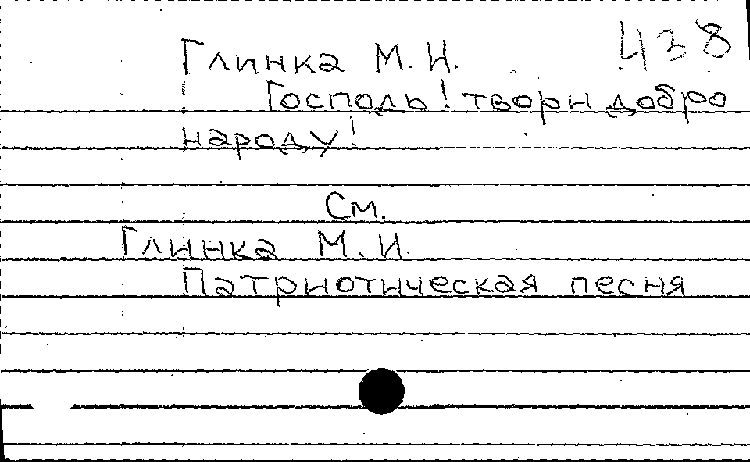 438
Глинка М.И.
Господь! твори добро
народу!
См.
Глинка М.И.
Патриотическая песня